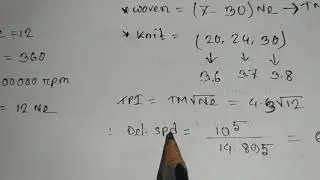 * woven = (7-30) Ne → TM
= 12
* Knit = (20, 24, 30)
= 360
↓ ↓ ↓
3.6 3.7 3.8
00000 rpm
TPI = TM√Ne = 4.3√12
= 12 Ne
∴ Del. spd = 10⁵ / 14.895 =